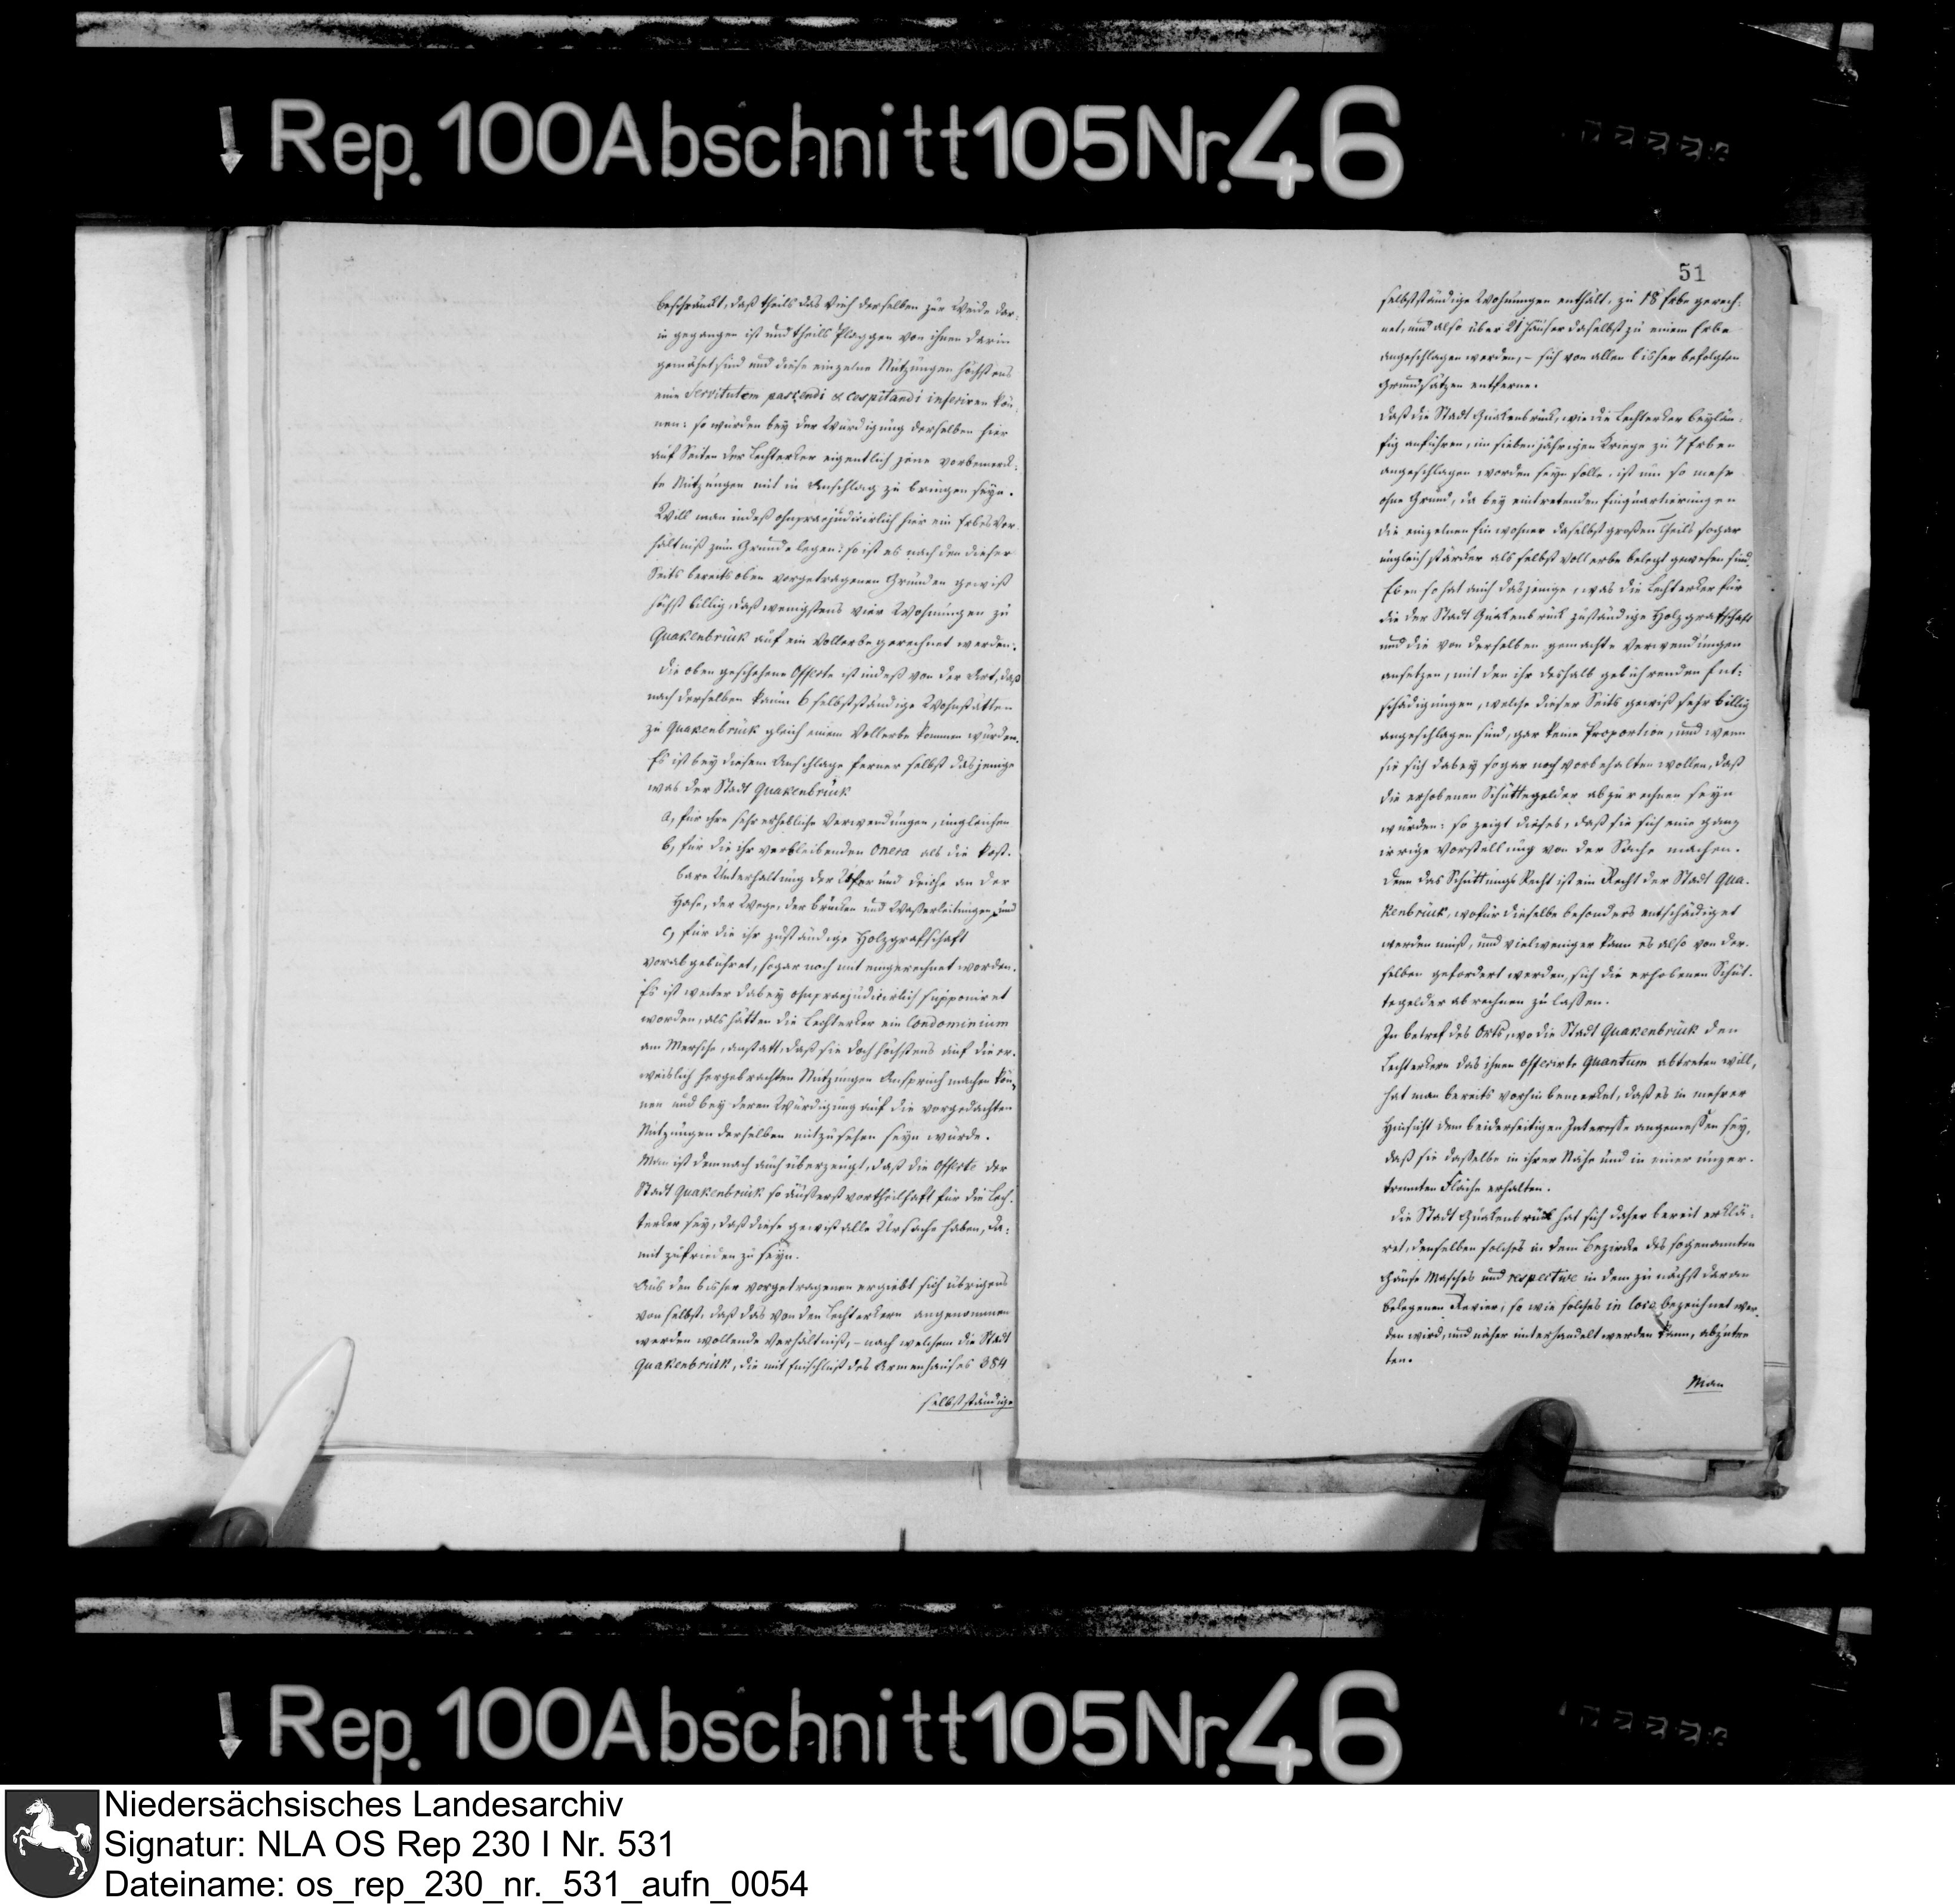 Rep. 100 Abschnitt 105 Nr. 46
beschränckt, daß theils das Vieh derselben zur Weide dar-
in gegangen ist und theils Plaggen von ihnen darin
gemähet sind und diese einzelne Nutzungen höchstens
eine Servitutem pascendi & cespitandi inferiren kön-
nen: so würden bey der Würdigung derselben hier
auf Seiten der Lechterker eigentlich jene vorbemerck-
te Nutzungen mit in Anschlag zu bringen seyn.
Will man indeß ohnpraejudicirlich hier ein Erbesver-
hältniß zum Grunde legen: so ist es nach den dieser
Seits bereits oben vorgetragenen Gründen gewiß
höchst billig, daß wenigstens vier Wohnungen zu
Quakenbrück auf ein Vollerbe gerechnet werden.
Die oben geschehene Offerte ist indeß von der Art, daß
nach derselben kaum 6 selbstständige Wohnstätten
zu Quakenbrück gleich einem Vollerbe kommen würden.
Es ist bey diesem Anschlage ferner selbst dasjenige
was der Stadt Quakenbrück
a, für ihre sehr erhebliche Verwendungen, imgleichen
b, für die ihr verbleibenden onera als die kost-
bare Unterhaltung der Ufer und Deiche an der
Hase, der Wege, der Brücken und Waßerleitungen, und
c, für die ihr zuständige Holzgrafschaft
vorab gebühret, sogar noch mit eingerechnet worden.
Es ist weiter dabey ohnpraejudicirlich supponiret
worden, als hätten die Lechterker ein Condominium
am Mersche, anstatt, daß sie doch höchstens auf die er-
weislich hergebrachten Nutzungen Anspruch machen kön-
nen und bey deren Würdigung auf die vorgedachten
Nutzungen derselben mitzusehen seyn würde.
Man ist demnach auch überzeugt, daß die Offerte der
Stadt Quakenbrück so äußerst vortheilhaft für die Lech-
terker sey, daß diese gewiß alle Ursache haben, da-
mit zufrieden zu seyn.
Aus den bisher vorgetragenen ergiebt sich übrigens
von selbst, daß das von den Lechterkern angenommen
werden wollende Verhältniß, - nach welchem die Stadt
Quakenbrück, die mit Einschluß des Armenhauses 384
selbstständige
51
selbstständige Wohnungen enthält, zu 18 Erbe gerech-
net, und also über 21 Häuser daselbst zu einem Erbe
angeschlagen werden, - sich von allen bisher befolgten
Grundsätzen entferne.
Daß die Stadt Quakenbrück, wie die Lechterker beyläu-
fig anführen, im siebenjährigen Kriege zu 7 Erben
angeschlagen worden seyn solle, ist um so mehr
ohne Grund, da bey eintretenden Einquartierungen
die einzelnen Einwohner daselbst großen Theils sogar
ungleich stärcker als selbst Vollerbe belegt gewesen sind.
Eben so hat auch dasjenige, was die Lechterker für
die der Stadt Quakenbrück zuständige Holzgrafschaft
und die von derselben gemachte Verwendungen
ansetzen, mit den ihr deshalb gebührenden Ent-
schädigungen, welche dieser Seits gewiß sehr billig
angeschlagen sind, gar keine Proportion, und wenn
sie sich dabey sogar noch vorbehalten wollen, daß
die erhobenen Schüttegelder abzurechnen seyn
würden: so zeigt dieses, daß sie sich eine ganz
irrige Vorstellung von der Sache machen.
Denn das Schüttungs Recht ist ein Recht der Stadt Qua-
kenbrück, wofür dieselbe besonders entschädiget
werden muß, und vielweniger kann es also von der-
selben gefordert werden, sich die erhobenen Schüt-
tegelder abrechnen zu laßen.
In betref des Orts, wo die Stadt Quakenbrück den
Lechterkern das ihnen offerirte Quantum abtreten will,
hat man bereits vorhin bemercket, daß es in mehrer
Hinsicht dem beiderseitigen Interesse angemeßen sey,
daß sie daßelbe in ihrer Nähe und in einer unzer-
trennten Fläche erhalten.
Die Stadt Quakenbrück hat sich daher bereit erklä-
ret, denselben solches in dem Bezircke des sogenannten
Masches und respective in dem zunächst daran
belegenen Revier, so wie solches in loco bezeichnet wer-
den wird, und näher unterhandelt werden kann, abzutre
ten.
Man
Rep. 100 Abschnitt 105 Nr. 46
Niedersächsisches Landesarchiv
Signatur: NLA OS Rep 230 I Nr. 531
Dateiname: os_rep_230_nr._531_aufn_0054